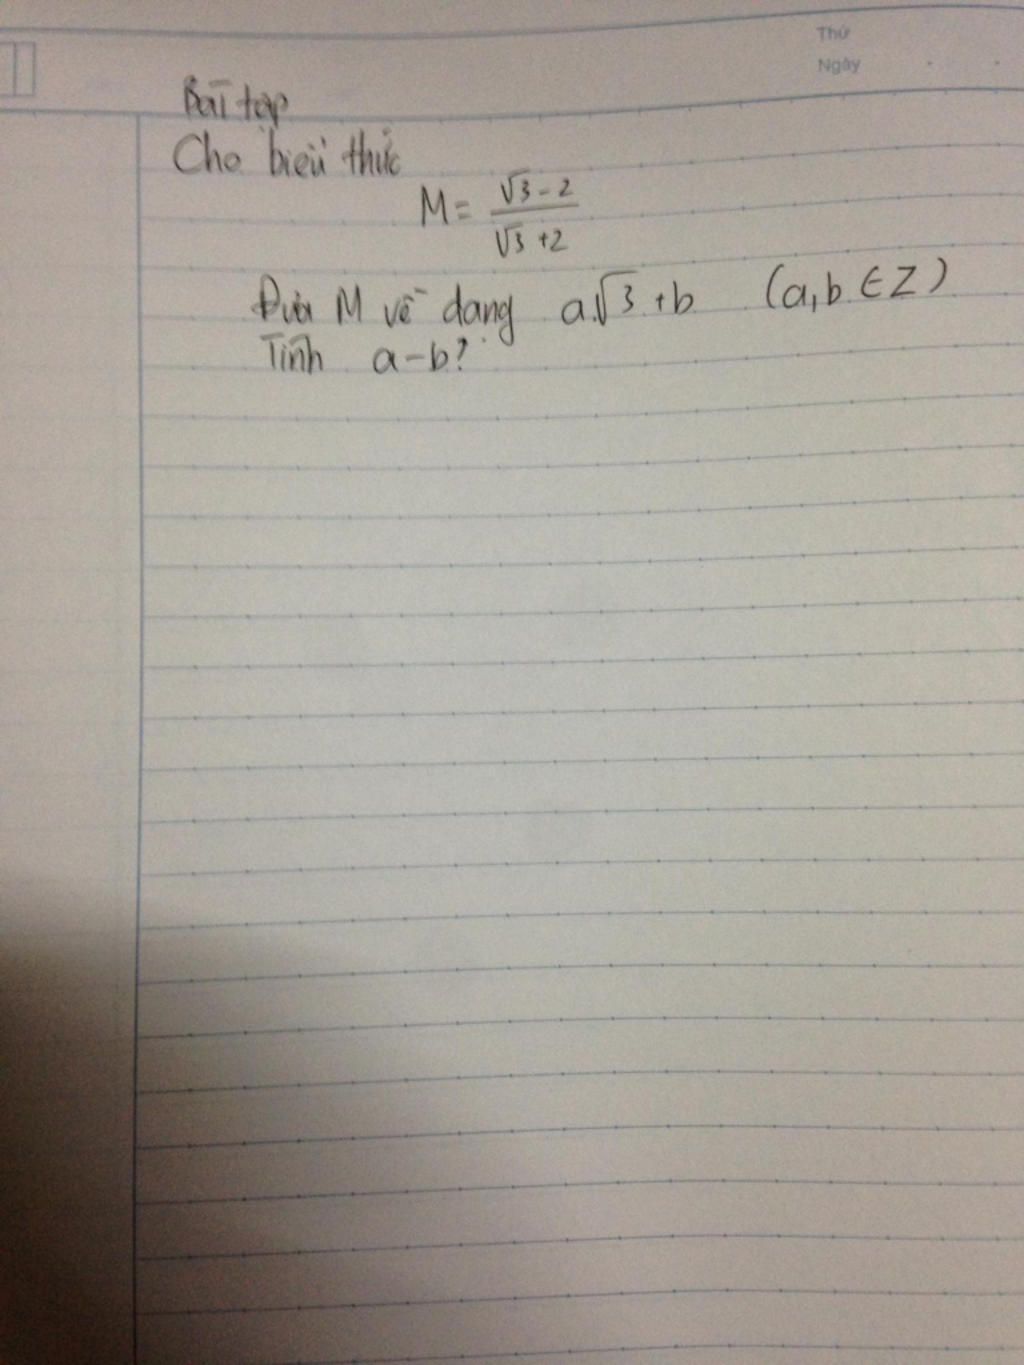 Thứ
Ngày
Bài tập
Cho biểu thức
M = \frac{\sqrt{3} - 2}{\sqrt{3} + 2}
Đưa M về dạng a√3 + b (a, b ∈ Z)
Tính a - b?